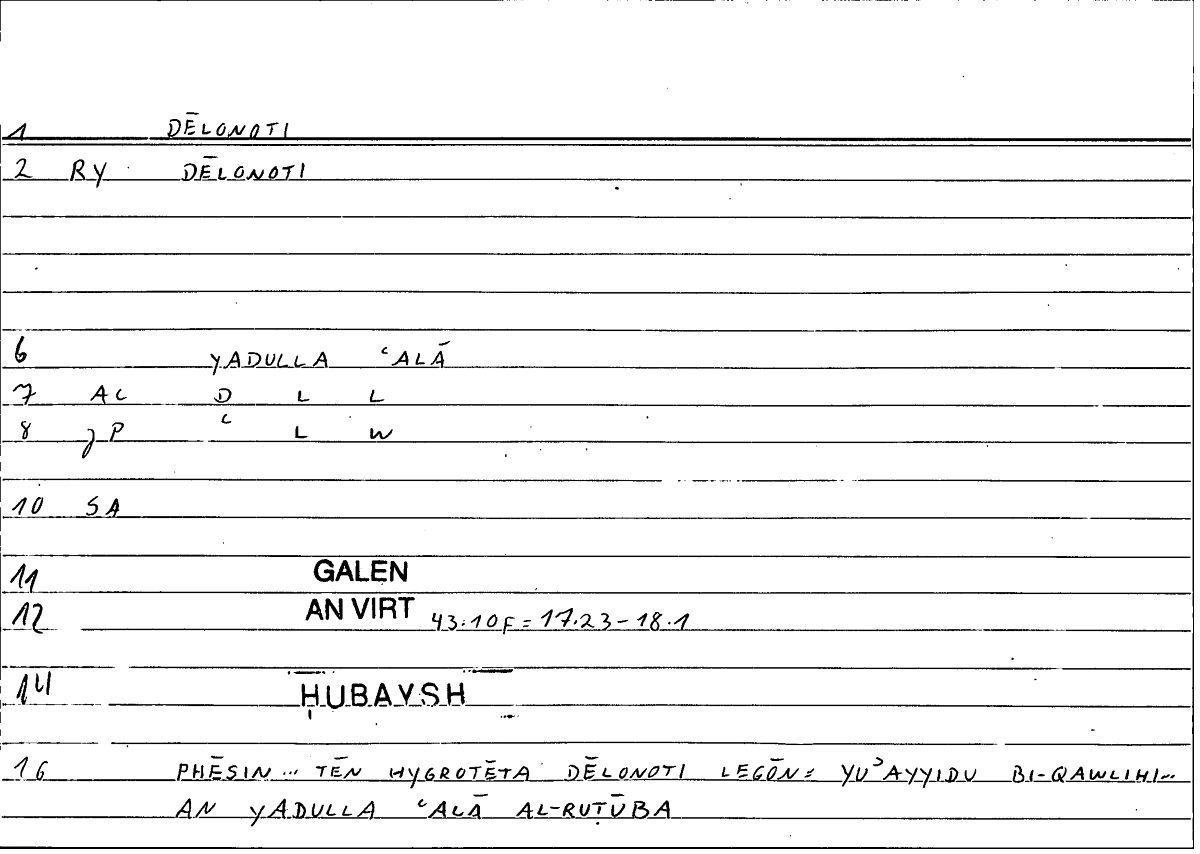 1 DĒLONOTI
2 RY DĒLONOTI
6 YADULLA ʿALĀ
7 AC D L L
8 JP ʿ L W
10 SA
11 GALEN
12 AN VIRT 43.10F = 17.23-18.1
14 ḤUBAYSH
16 PHĒSIN... TĒN HYGROTĒTA DĒLONOTI LEGŌN = YUʾAYYIDU BI-QAWLIHI...
AN YADULLA ʿALĀ AL-RUṬŪBA